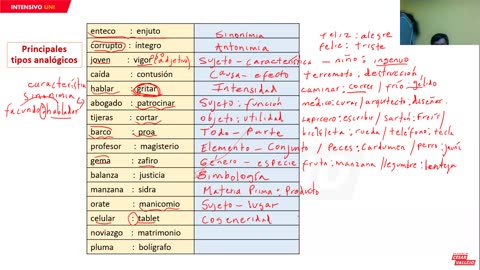 INTENSIVO UNI
Principales
tipos analógicos
característica
sinonimia
facundo: hablador
enteco : enjuto Sinonimia
corrupto : íntegro Antonimia
joven : vigoroso (adjetivo) Sujeto - característica - niño: ingenuo
caída : contusión Causa - efecto terremoto: destrucción
hablar : gritar Intensidad caminar: correr / frío: gélido
abogado : patrocinar Sujeto: función médico: curar / arquitecto: diseñar
tijeras : cortar objeto: utilidad lapicero: escribir / sartén: freír /
barco : proa Todo - Parte bicicleta: rueda / teléfono: tecla
profesor : magisterio Elemento - Conjunto / Peces: cardumen / perro: jauría
gema : zafiro Género - especie fruta: manzana / legumbre: lenteja
balanza : justicia Simbología
manzana : sidra Materia Prima: Producto
orate : manicomio Sujeto - lugar
celular : tablet Cogeneridad
noviazgo : matrimonio
pluma : bolígrafo
feliz: alegre
feliz: triste
CÉSAR
VALLEJO